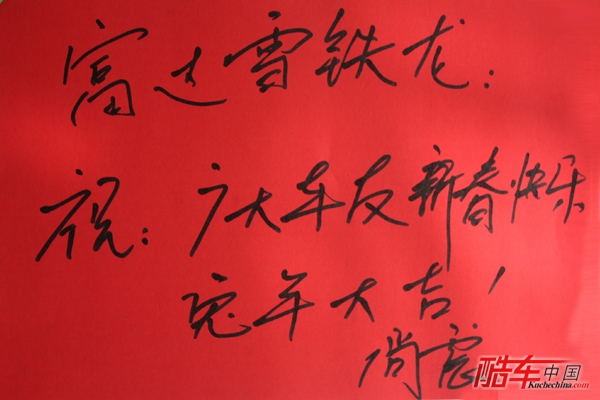 富达雪铁龙：
祝：广大车友新春快乐
兔年大吉！
尚震
酷车中国
Kuchechina.com